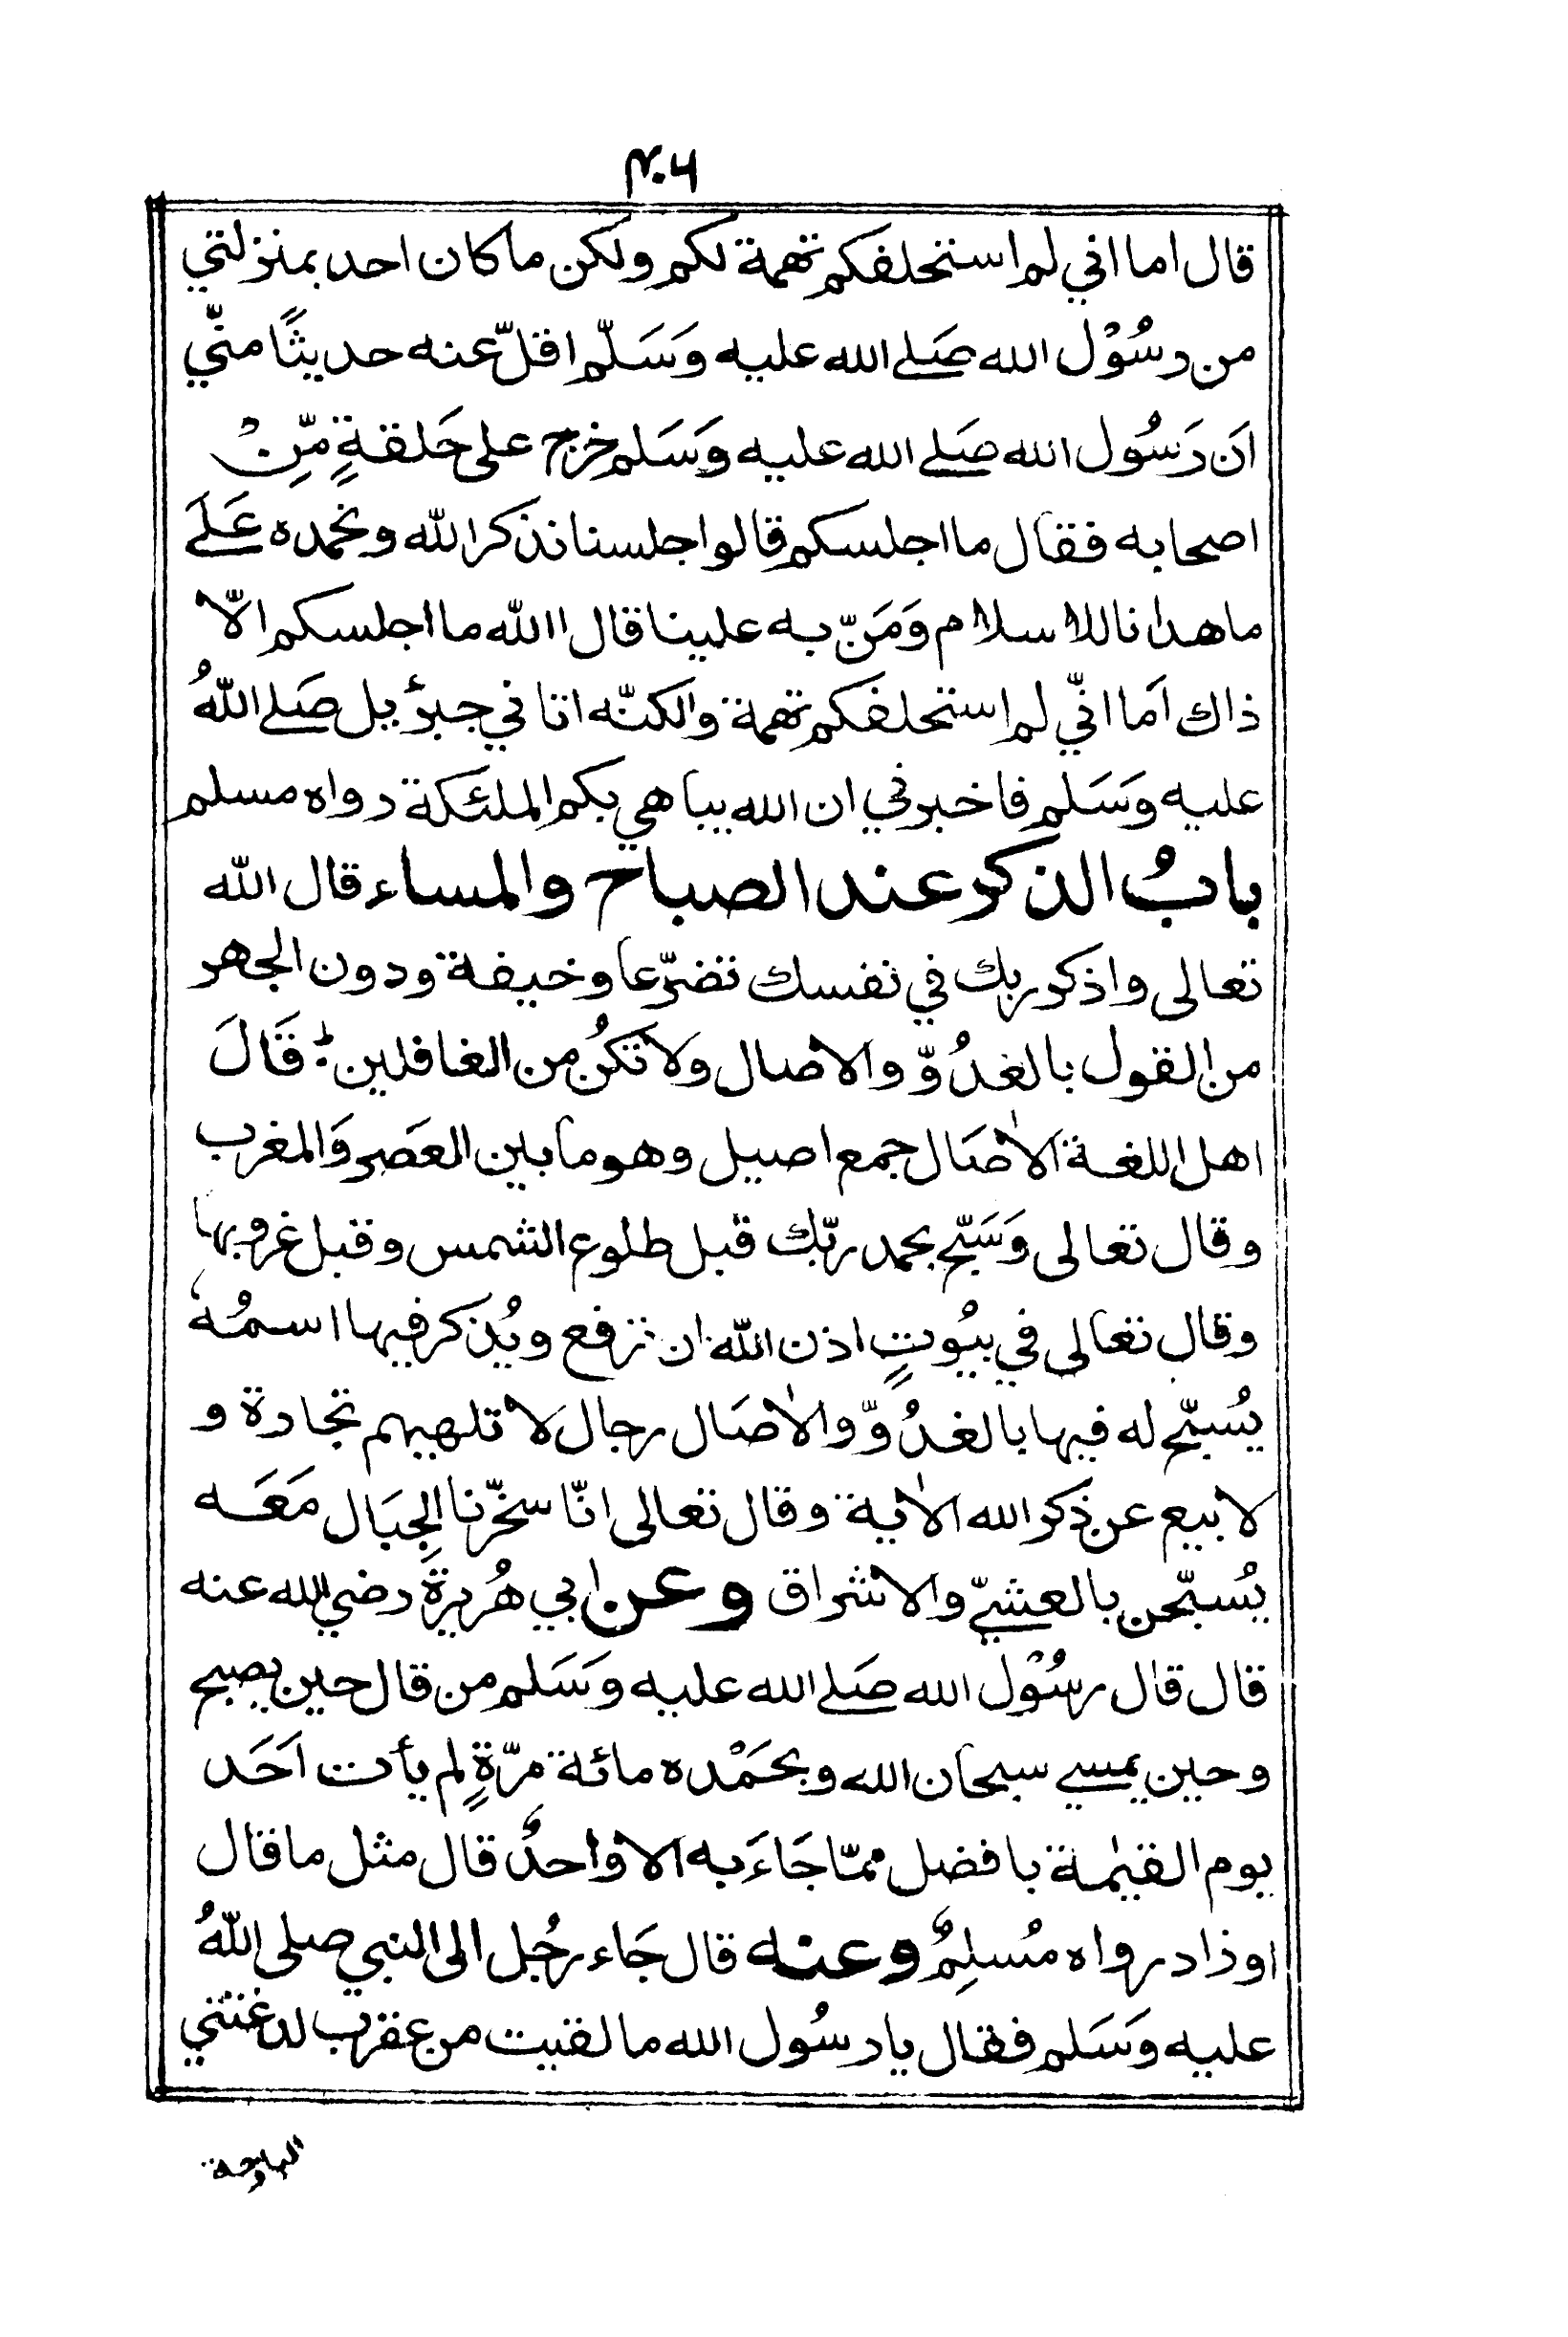 ۴۰۶
قال اما اني لم استحلفكم تهمة لكم ولكن ما كان احد بمنزلتي
من رسُوْل الله صَلے الله عليه وَسَلّم اقلّ عنه حديثًا منّي
انَ رَسُول الله صَلے الله عليه وَسَلم خرج على حَلقةٍ مِّنْ
اصحابه فقال ما اجلسكم قالوا جلسنا نذكر الله ونحمده عَلَے
ما هدانا للاسلام وَمَنّ به علينا قال االله ما اجلسكم الّا
ذاك اَما انّي لم استحلفكم تهمة والكنّه اتاني جبرئيل صَلے اللهُ
عليه وَسَلم فاخبرني ان الله يباهي بكم الملئكة رواه مسلم
بابُ الذكر عند الصباح والمساء قال الله
تعالى واذكر ربك في نفسك تضرّعا وخيفة ودون الجهر
من القول بالغدُوّ والاصال ولا تكُن من الغافلين ؛ قَالَ
اهل اللغة الاٰصَال جمع اصيل وهو ما بين العَصر وَالمغرب
وقال تعالى وَسَبّح بحمد ربّك قبل طلوع الشمس وقبل غروبها
وقال تعالى في بيُوتٍ اذن الله ان ترفع ويُذكر فيها اسمُهٗ
يُسبّح له فيها بالغدُوّ والاٰصَال رجال لا تلهيهم تجارة و
لا بيع عن ذكر الله الاٰية وقال تعالى انّا سخّرنا الجِبَال مَعَه
يُسبّحن بالعشيّ والاشراق وعن ابي هُريرةَ رضي الله عنه
قال قال رسُوْل الله صَلے الله عليه وَسَلم من قال حين يصبح
وحين يمسي سبحان الله وبحَمْده مائة مرّةٍ لم يأت اَحَد
يوم القيٰمة بافضل ممّا جَاءَ به الا واحدٌ قال مثل ما قال
او زاد رواه مُسلِمٌ وعنه قال جَاء رجُل الى النبي صلى اللهُ
عليه وَسَلم فقال يا رسُول الله ما لقيت من عقرب لدغتني
البارحة